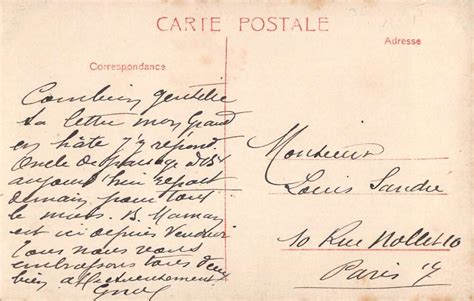 CARTE POSTALE
Correspondance
Adresse
Combien gentille
ta lettre mon Grand
en hâte j'y répond.
Oncle de passage
aujourd'hui repart
demain pour tout
le mieux. B. Maman
est ici depuis Vendredi
Tous nous vous
embrassons tous deux
bien affectueusement
Monsieur
Louis Sandre
10 Rue Nollet 10
Paris 17